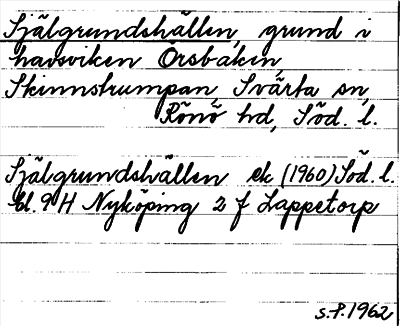 Själgrundshällen, grund i
havsviken Örsbaken,
Skinnstrumpan, Svärta sn,
Rönö hd, Söd. l.
Själgrundshällen ek (1960) Söd. l.
bl. 9H Nyköping 2 f Lappetorp
S.P. 1962